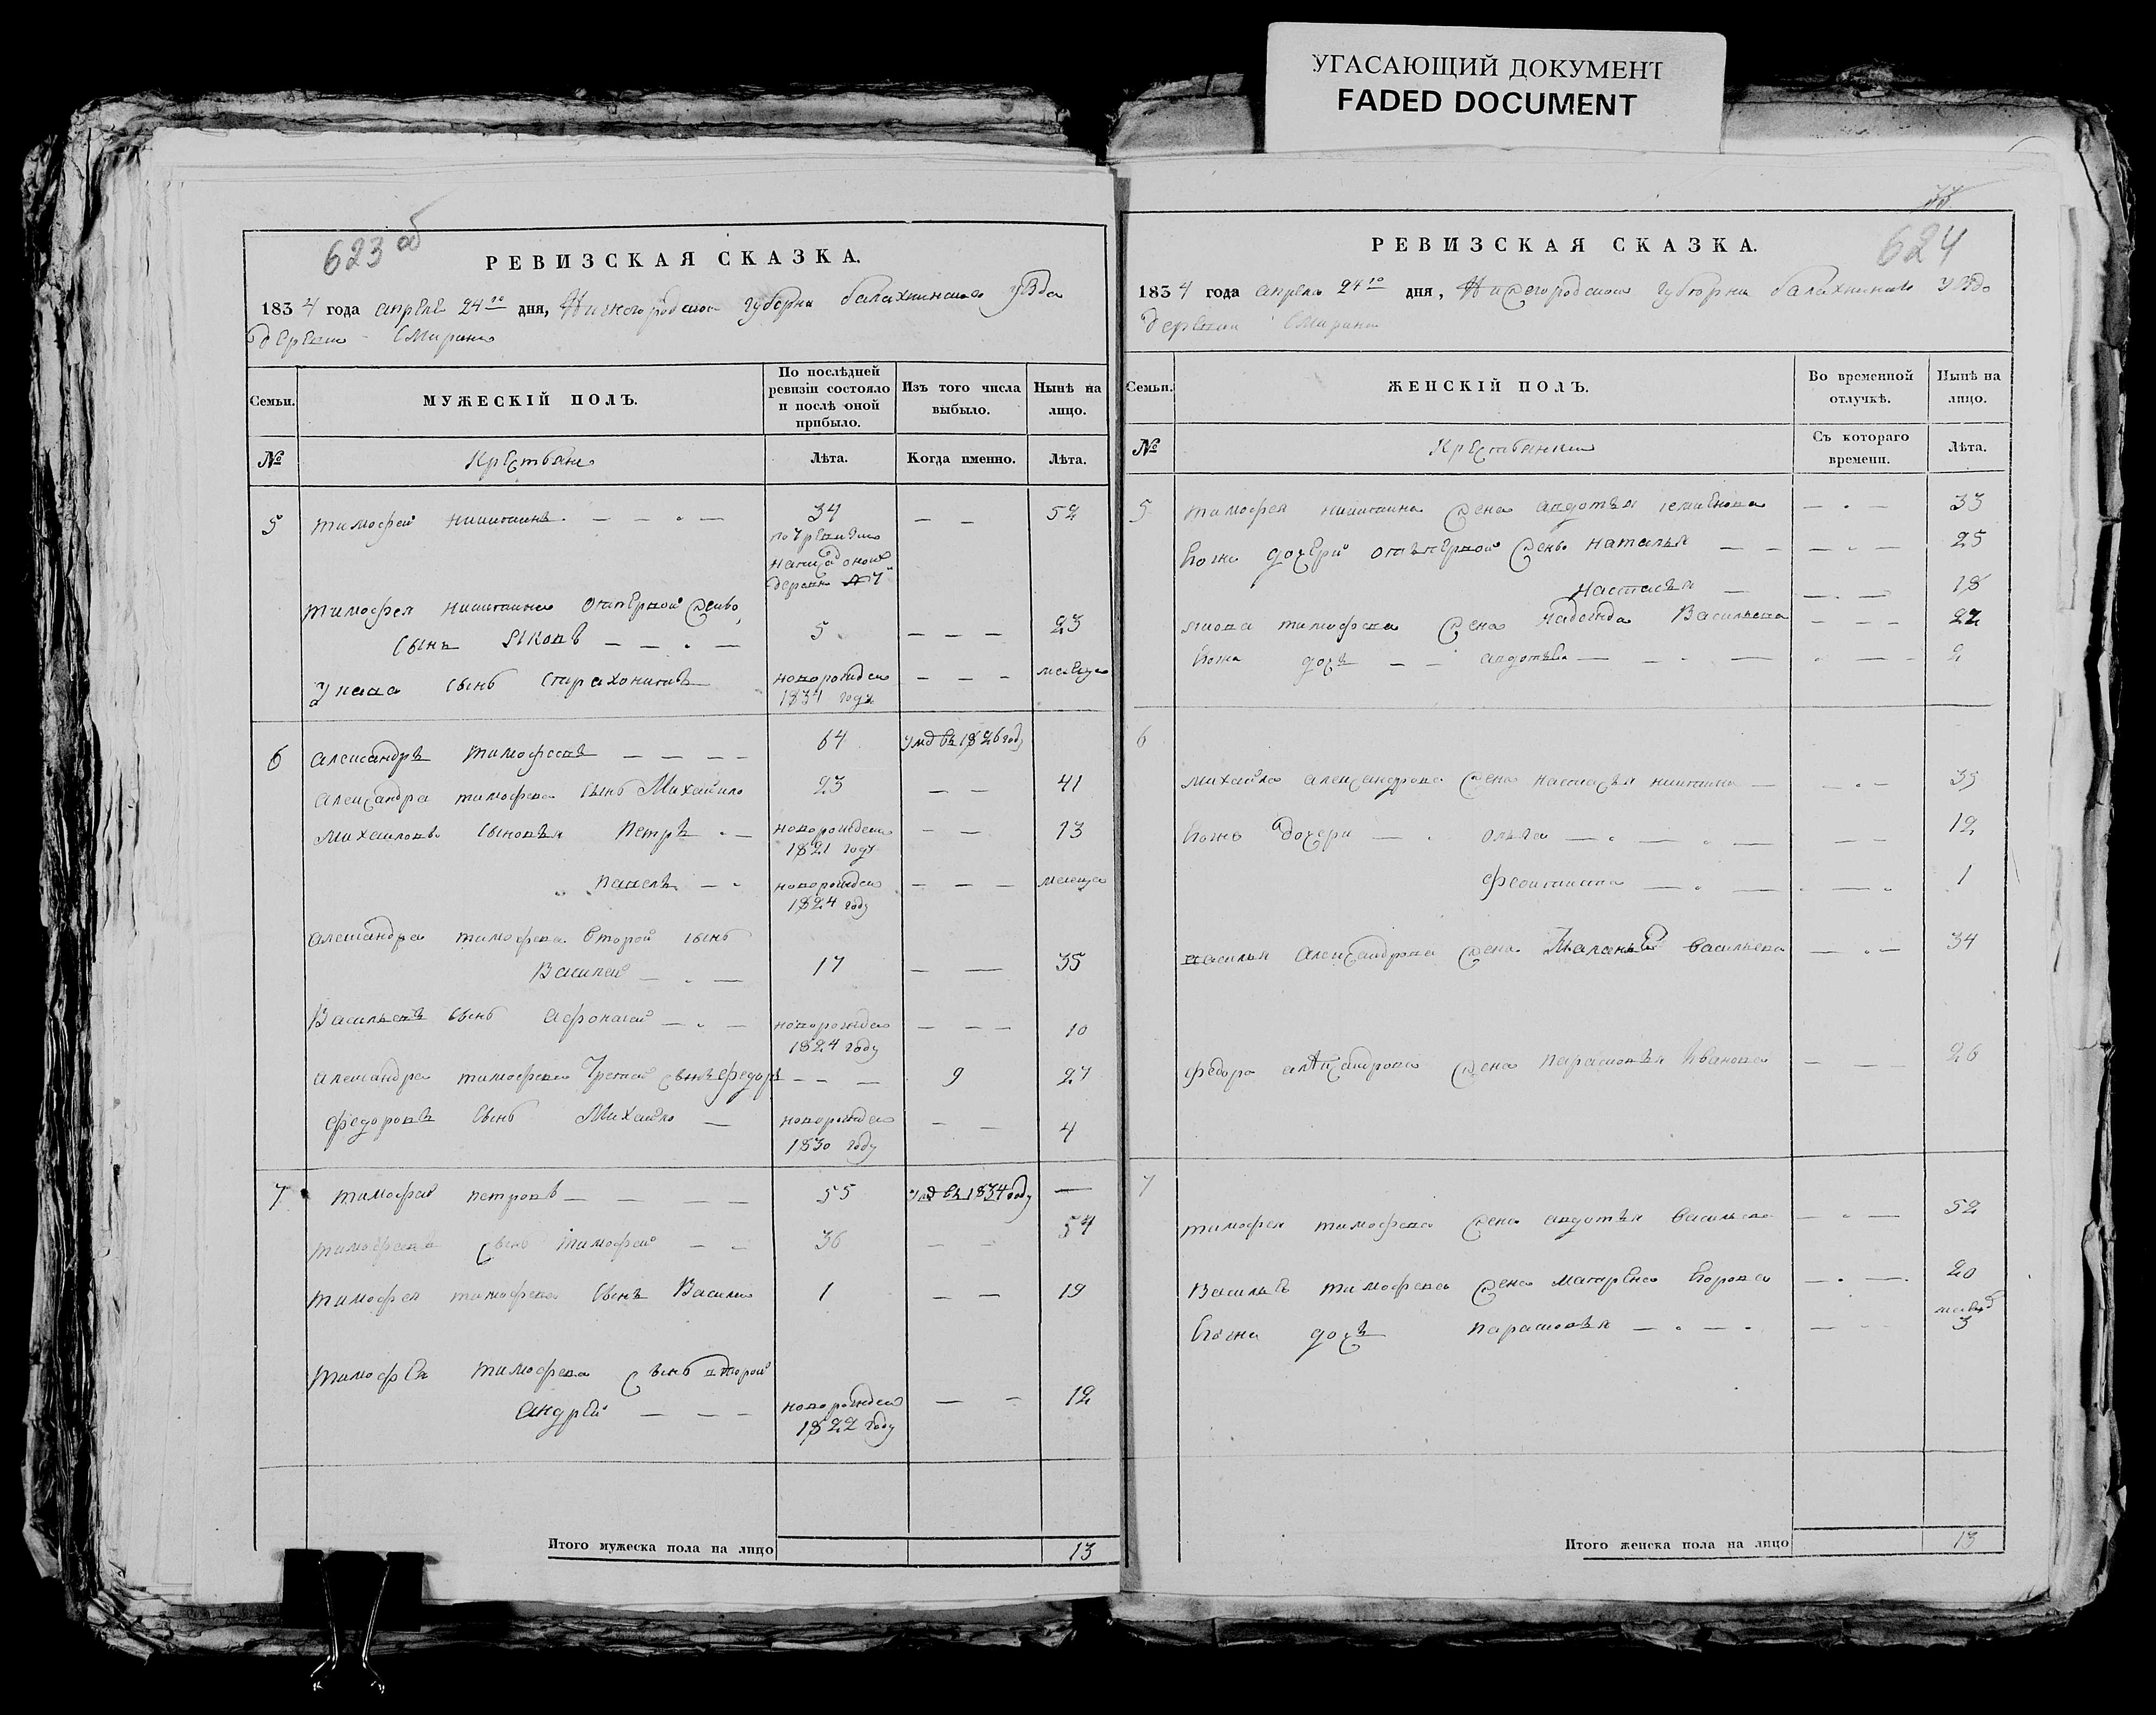 УГАСАЮЩИЙ ДОКУМЕНТ
FADED DOCUMENT
623 об
РЕВИЗСКАЯ СКАЗКА.
1834 года апреле 24го дня, Нижегородской губерни балахнинскаго уезда
деревни Смирина
Семьи.
МУЖЕСКІЙ ПОЛЪ.
По послѣдней ревизіи состояло и послѣ оной прибыло.
Изъ того числа выбыло.
Нынѣ на лицо.
№
Крестьяне
Лѣта.
Когда именно.
Лѣта.
5 тимофей никитинъ 34 52
по 7 ревизии
деревни № 7
тимофея никитина отперной жены
сынъ Яковъ 5 23
сынъ новорожден месеца
1834 году
6 александръ тимофеевъ 64 умд въ 1826 году
александра тимофева сынъ Михайло 23 41
Михаиловы сыновья Петръ новорожден 13
1821 году
павелъ новорожден месеца
1824 году
александра тимофева второй сынъ
Василей 17 35
Васильевъ сынъ Афонасей новорожден 10
1824 году
александра тимофева третей сынъ федоръ 9 27
федоровъ сынъ Михайло новорожден 4
1830 году
7 тимофей петровъ 55 умд въ 1834 году
тимофеевъ сынъ тимофей 36 54
тимофея тимофева сынъ Василей 1 19
тимофея тимофева сынъ второй
андрей новорожден 12
1822 году
Итого мужеска пола на лицо 13
624
РЕВИЗСКАЯ СКАЗКА.
1834 года апреля 24го дня, Нижегородской губерни балахнинскаго уезда
деревни Смирина
Семьи.
ЖЕНСКІЙ ПОЛЪ.
Во временной отлучкѣ.
Нынѣ на лицо.
№
Крестьянки
Съ котораго времени.
Лѣта.
5 тимофея никитина жена авдотья 33
Ево дочери отперной жены наталья 25
настасья 18
якова тимофева жена надежда Васильева 22
Ево дочь авдотья 2
6
михайла александрова жена настасья никитина 39
Ево дочери ольга 12
феоктиста 1
василья александрова жена маланья васильева 34
федора александрова жена парасковья Иванова 26
7
тимофея тимофева жена авдотья васильева 52
Василья тимофева жена матрена Егорова 20
Ево дочь парасковья 3
Итого женска пола на лицо 13